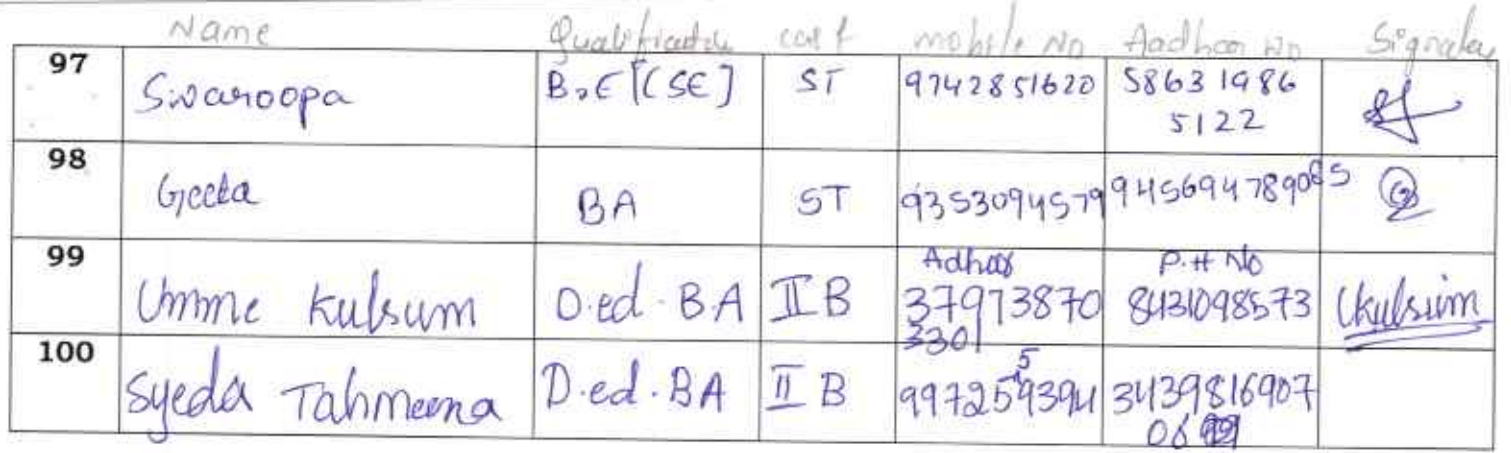 Name Qualification cast mobile No Aadhaar No Signatey
97 Swaroopa B.E [CSE] ST 9742851620 58631986
5122
98 Geeta BA ST 9353094579
99 Umme Kulsum D.ed. BA II B Adhar 37973870 3301 P.H No 8431098573 Ukulsum
100 Syeda Tahmeena D.ed. BA II B 3439816907
06